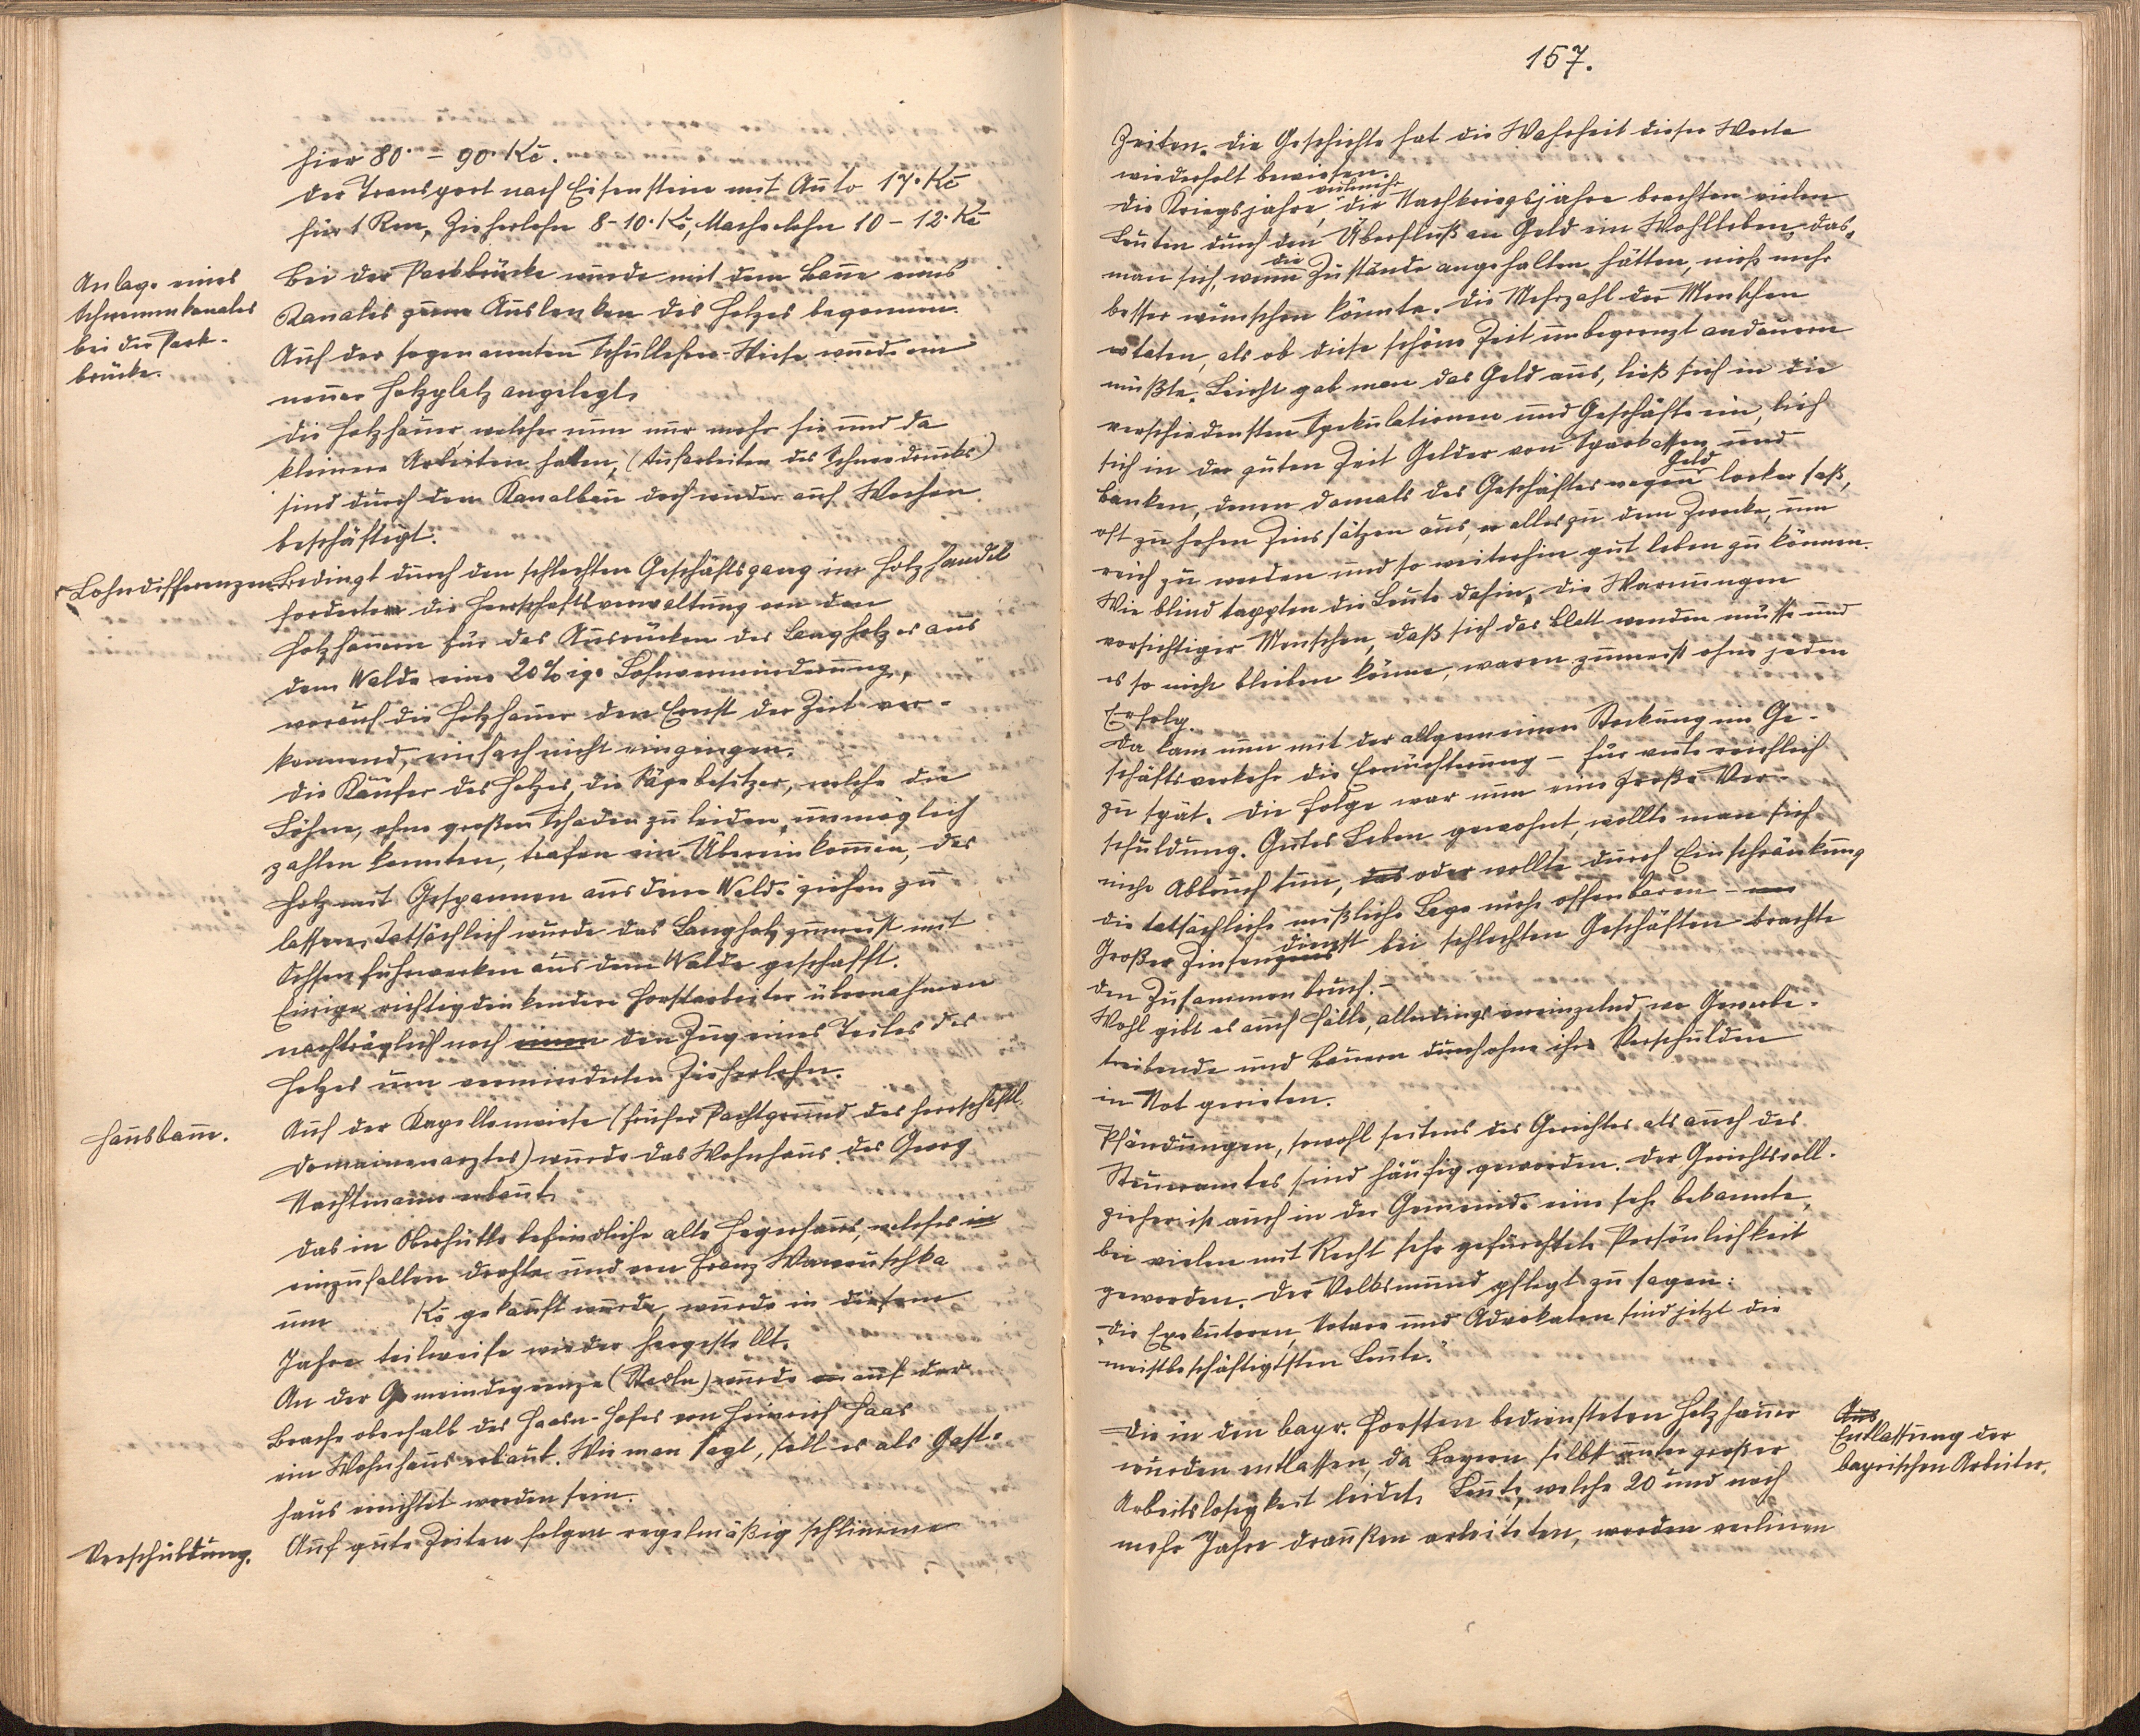 hier 80·- 90· Kč.
Der Transport nach Eisenstein mit Auto 17· Kč
für 1 Rm, Zieherlohn 8-10· Kč, Macherlohn 10-12· Kč
Anlage eines
Schwemmkanales
bei der Park-
brücke.
Bei der Parkbrücke wurde mit dem Baue eines
Kanales zum Auslenken des Holzes begonnen.
Auf der sogenannten Schullehrer-Wiese wurde ein
neuer Holzplatz angelegt.
Die Holzhauer, welche nun nur mehr hie und da
kleinere Arbeiten hatten, (Aufarbeiten des Schneedrucks)
sind durch den Kanalbau doch wieder auf Wochen
beschäftigt.
Lohndifferenzen
Bedingt durch den schlechten Geschäftsgang im Holzhandel
forderten die Herrschaftsverwaltung von den
Holzhauern für das Ausrücken des Langholzes aus
dem Walde eine 20%ige Lohnverminderung,
worauf die Holzhauer den Ernst der Zeit ver-
kennend, einfach nicht eingingen.
Die Käufer des Holzes, die Sägebesitzer, welche die
Löhne, ohne großen Schaden zu leiden, unmöglich
zahlen konnten, trafen ein Übereinkommen, das
Holz mit Gespannen aus dem Walde ziehen zu
lassen. Tatsächlich wurde das Langholz zumeist mit
Ochsenfuhrwerken aus dem Walde geschafft.
Einige richtigdenkendere Forstarbeiter übernahmen
nachträglich noch einen den Zug eines Teiles des
Holzes um verminderten Zieherlohn.
Hausbaue.
Auf der Kapellenwiese (früher Pachtgrund des herrschaftl.
Domainenarztes) wurde das Wohnhaus des Georg
Nachtmann erbaut.
Das in Oberhütte befindliche alte Hegerhaus, welches in
einzufallen drohte und von Franz Wawruschka
um Kč gekauft wurde, wurde in diesem
Jahre teilweise wieder hergestellt.
An der Gemeindegrenze (Stadln) wurde an auf der
Brache oberhalb des Haasn-Hofes von Heinrich Haas
ein Wohnhaus erbaut. Wie man sagt, soll es als Gast-
haus errichtet worden sein.
Verschuldung.
Auf gute Zeiten folgen regelmäßig schlimme
157.
Zeiten. Die Geschichte hat die Wahrheit dieser Worte
wiederholt bewiesen.
Die Kriegsjahre, vielmehr die Nachkriegsjahre brachten vielen
Leuten durch den Überfluß an Geld ein Wohlleben, das
man sich, wenn die Zustände angehalten hätten, nicht mehr
besser wünschen könnte. Die Mehrzahl der Menschen
taten, als ob diese schöne Zeit unbegrenzt andauern
müßte. Leicht gab man das Geld aus, ließ sich in die
verschiedensten Spekulationen und Geschäfte ein, lieh
sich in der guten Zeit Gelder von Sparkassen und
Banken, denen damals des Geschäftes wegen Geld locker saß,
oft zu hohen Zinssätzen aus, alles zu dem Zwecke, um
reich zu werden und so weiterhin gut leben zu können.
Wie blind tappten die Leute dahin, die Warnungen
vorsichtiger Menschen, daß sich das Blatt wenden müsse und
es so nicht bleiben könne, waren zumeist ohne jeden
Erfolg.
Da kam nun mit der allgemeinen Stockung im Ge-
schäftsverkehr die Ernüchterung - für viele reichlich
zu spät. Die Folge war nun eine große Ver-
schuldung. Gutes Leben gewohnt, wollte man sich
nicht Abbruch tun, das oder wollte durch Einschränkung
die tatsächliche mißliche Lage nicht offenbaren -
Großer Zinsendienst bei schlechten Geschäften brachte
den Zusammenbruch. -
Wohl gibt es auch Fälle, allerdings vereinzelnd, wo Gewerbe-
treibende und Bauern durch ohne ihr Verschulden
in Not gerieten.
Pfändungen, sowohl seitens des Gerichtes als auch des
Steueramtes sind häufig geworden. Der Gerichtsvoll-
zieher ist auch in der Gemeinde eine sehr bekannte,
bei vielen mit Recht sehr gefürchtete Persönlichkeit
geworden. Der Volksmund pflegt zu sagen:
„Die Exekutoren, Notare und Advokaten sind jetzt die
meistbeschäftigtsten Leute."
Aus
Entlassung der
bayrischen Arbeiter.
Die in den bayr. Forsten bediensteten Holzhauer
wurden entlassen, da Bayern selbst unter großer
Arbeitslosigkeit leidet. Leute, welche 20 und noch
mehr Jahre draußen arbeiteten, werden verlieren